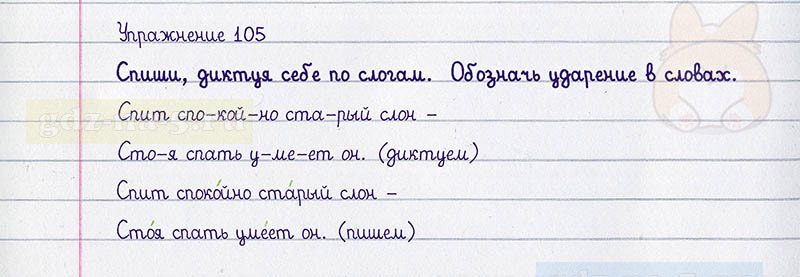 Упражнение 105
Спиши, диктуя себе по слогам. Обозначь ударение в словах.
Спит спо-кой-но ста-рый слон -
Сто-я спать у-ме-ет он. (диктуем)
Спит споко́йно ста́рый слон -
Сто́я спать уме́ет он. (пишем)